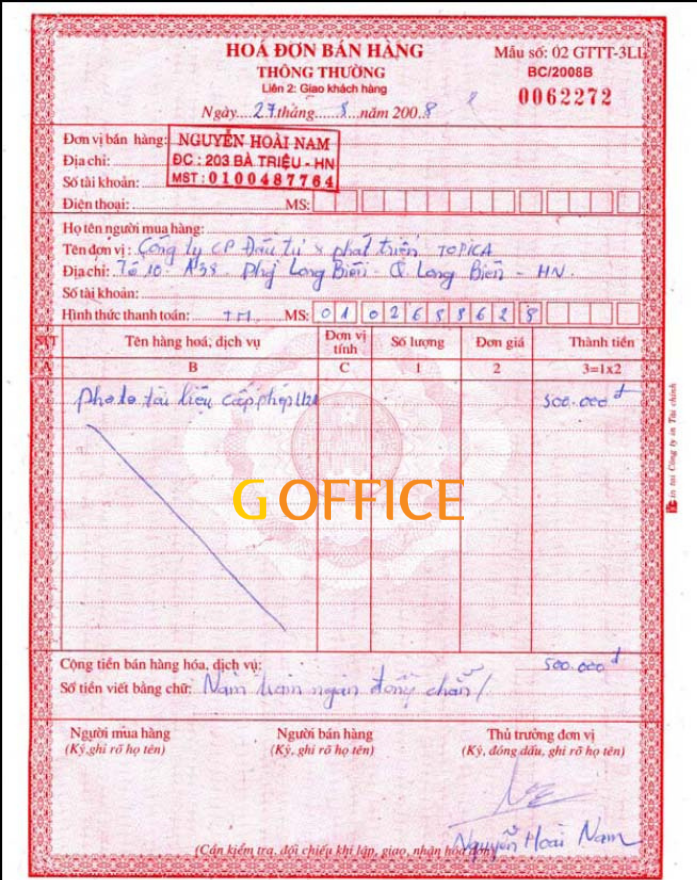 HOÁ ĐƠN BÁN HÀNG
THÔNG THƯỜNG
Liên 2: Giao khách hàng
Mẫu số: 02 GTTT-3LL
BC/2008B
0062272
Ngày....27.tháng....8....năm 200.8
Đơn vị bán hàng: NGUYỄN HOÀI NAM
Địa chỉ: ĐC : 203 BÀ TRIỆU - HN
Số tài khoản: MST : 0100487764
Điện thoại: MS:
Họ tên người mua hàng:
Tên đơn vị: Công ty CP Đầu tư & phát triển TOPICA
Địa chỉ: Tổ 10 - A38 - Phg Long Biên - Q Long Biên - HN.
Số tài khoản:
Hình thức thanh toán: TM MS: 01 02688628
STT Tên hàng hoá, dịch vụ Đơn vị tính Số lượng Đơn giá Thành tiền
A B C 1 2 3=1x2
Photo tài liệu cấp phép 500.000đ
G OFFICE
Cộng tiền bán hàng hóa, dịch vụ: 500.000đ
Số tiền viết bằng chữ: Năm trăm ngàn đồng chẵn /
Người mua hàng Người bán hàng Thủ trưởng đơn vị
(Ký, ghi rõ họ tên) (Ký, ghi rõ họ tên) (Ký, đóng dấu, ghi rõ họ tên)
Nguyễn Hoài Nam
(Cần kiểm tra, đối chiếu khi lập, giao, nhận hoá đơn)
in tại Công ty in Tài chính